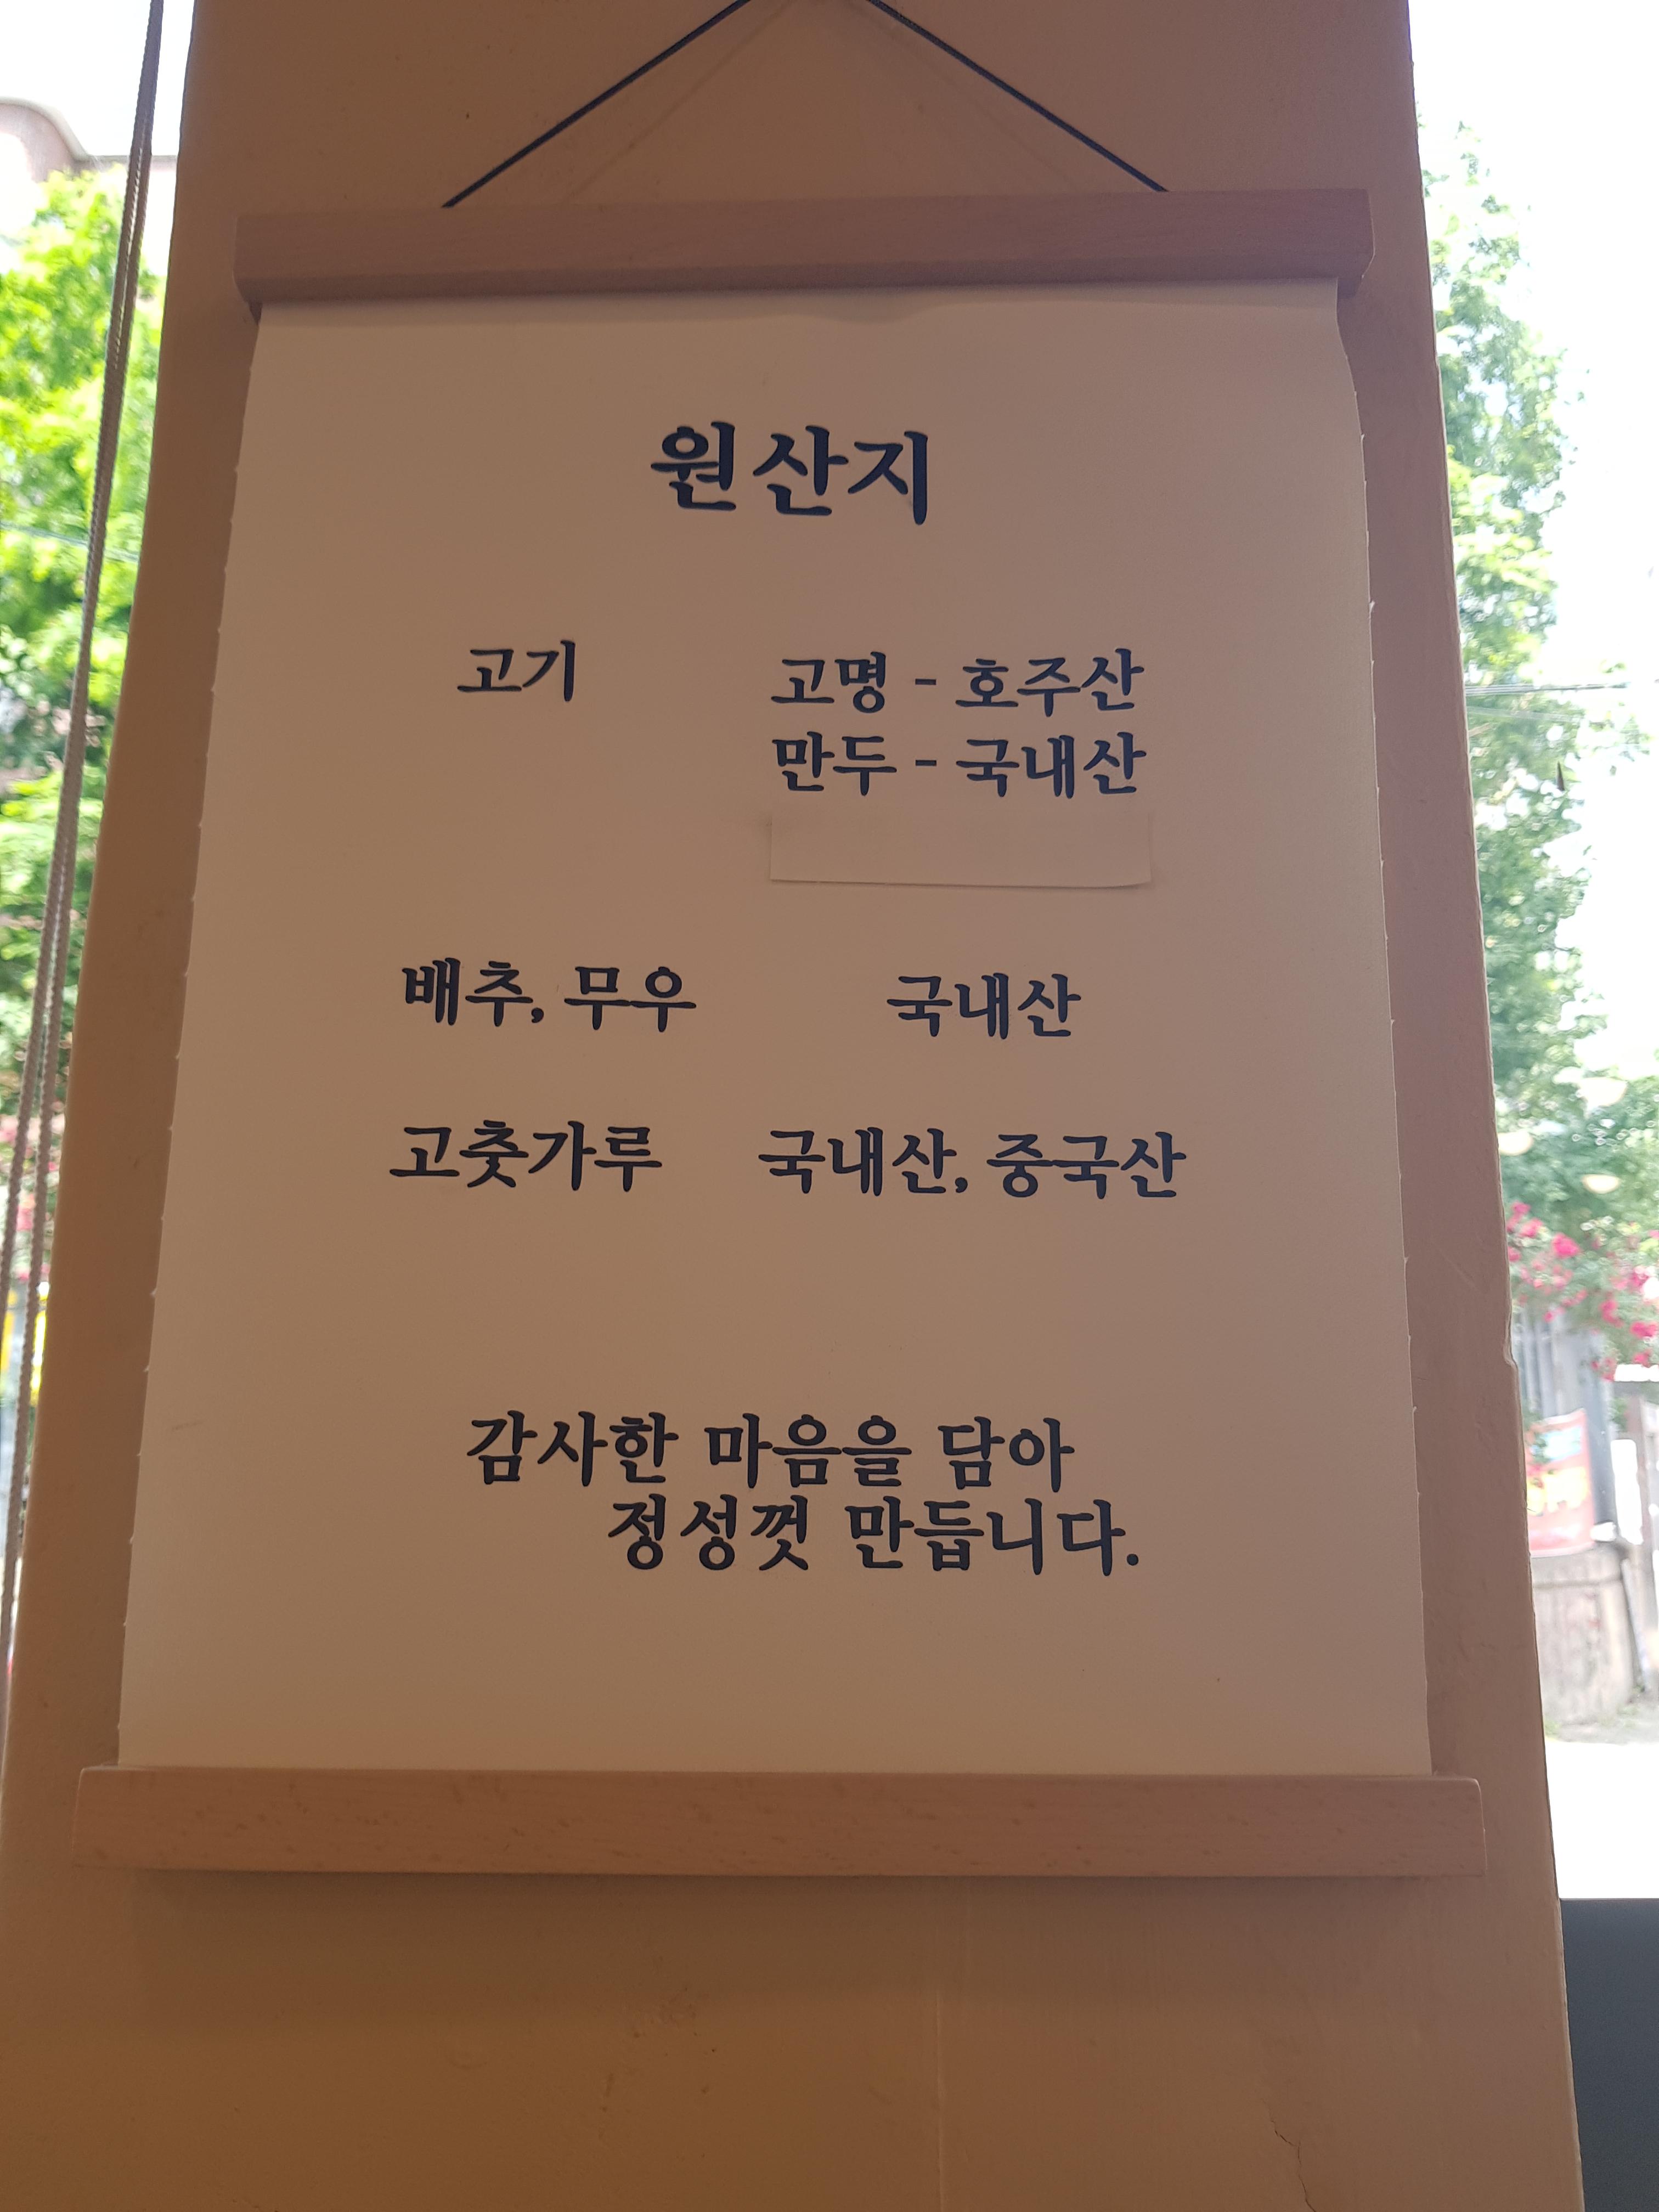 원산지
고기 고명 - 호주산
만두 - 국내산
배추, 무우 국내산
고춧가루 국내산, 중국산
감사한 마음을 담아
정성껏 만듭니다.